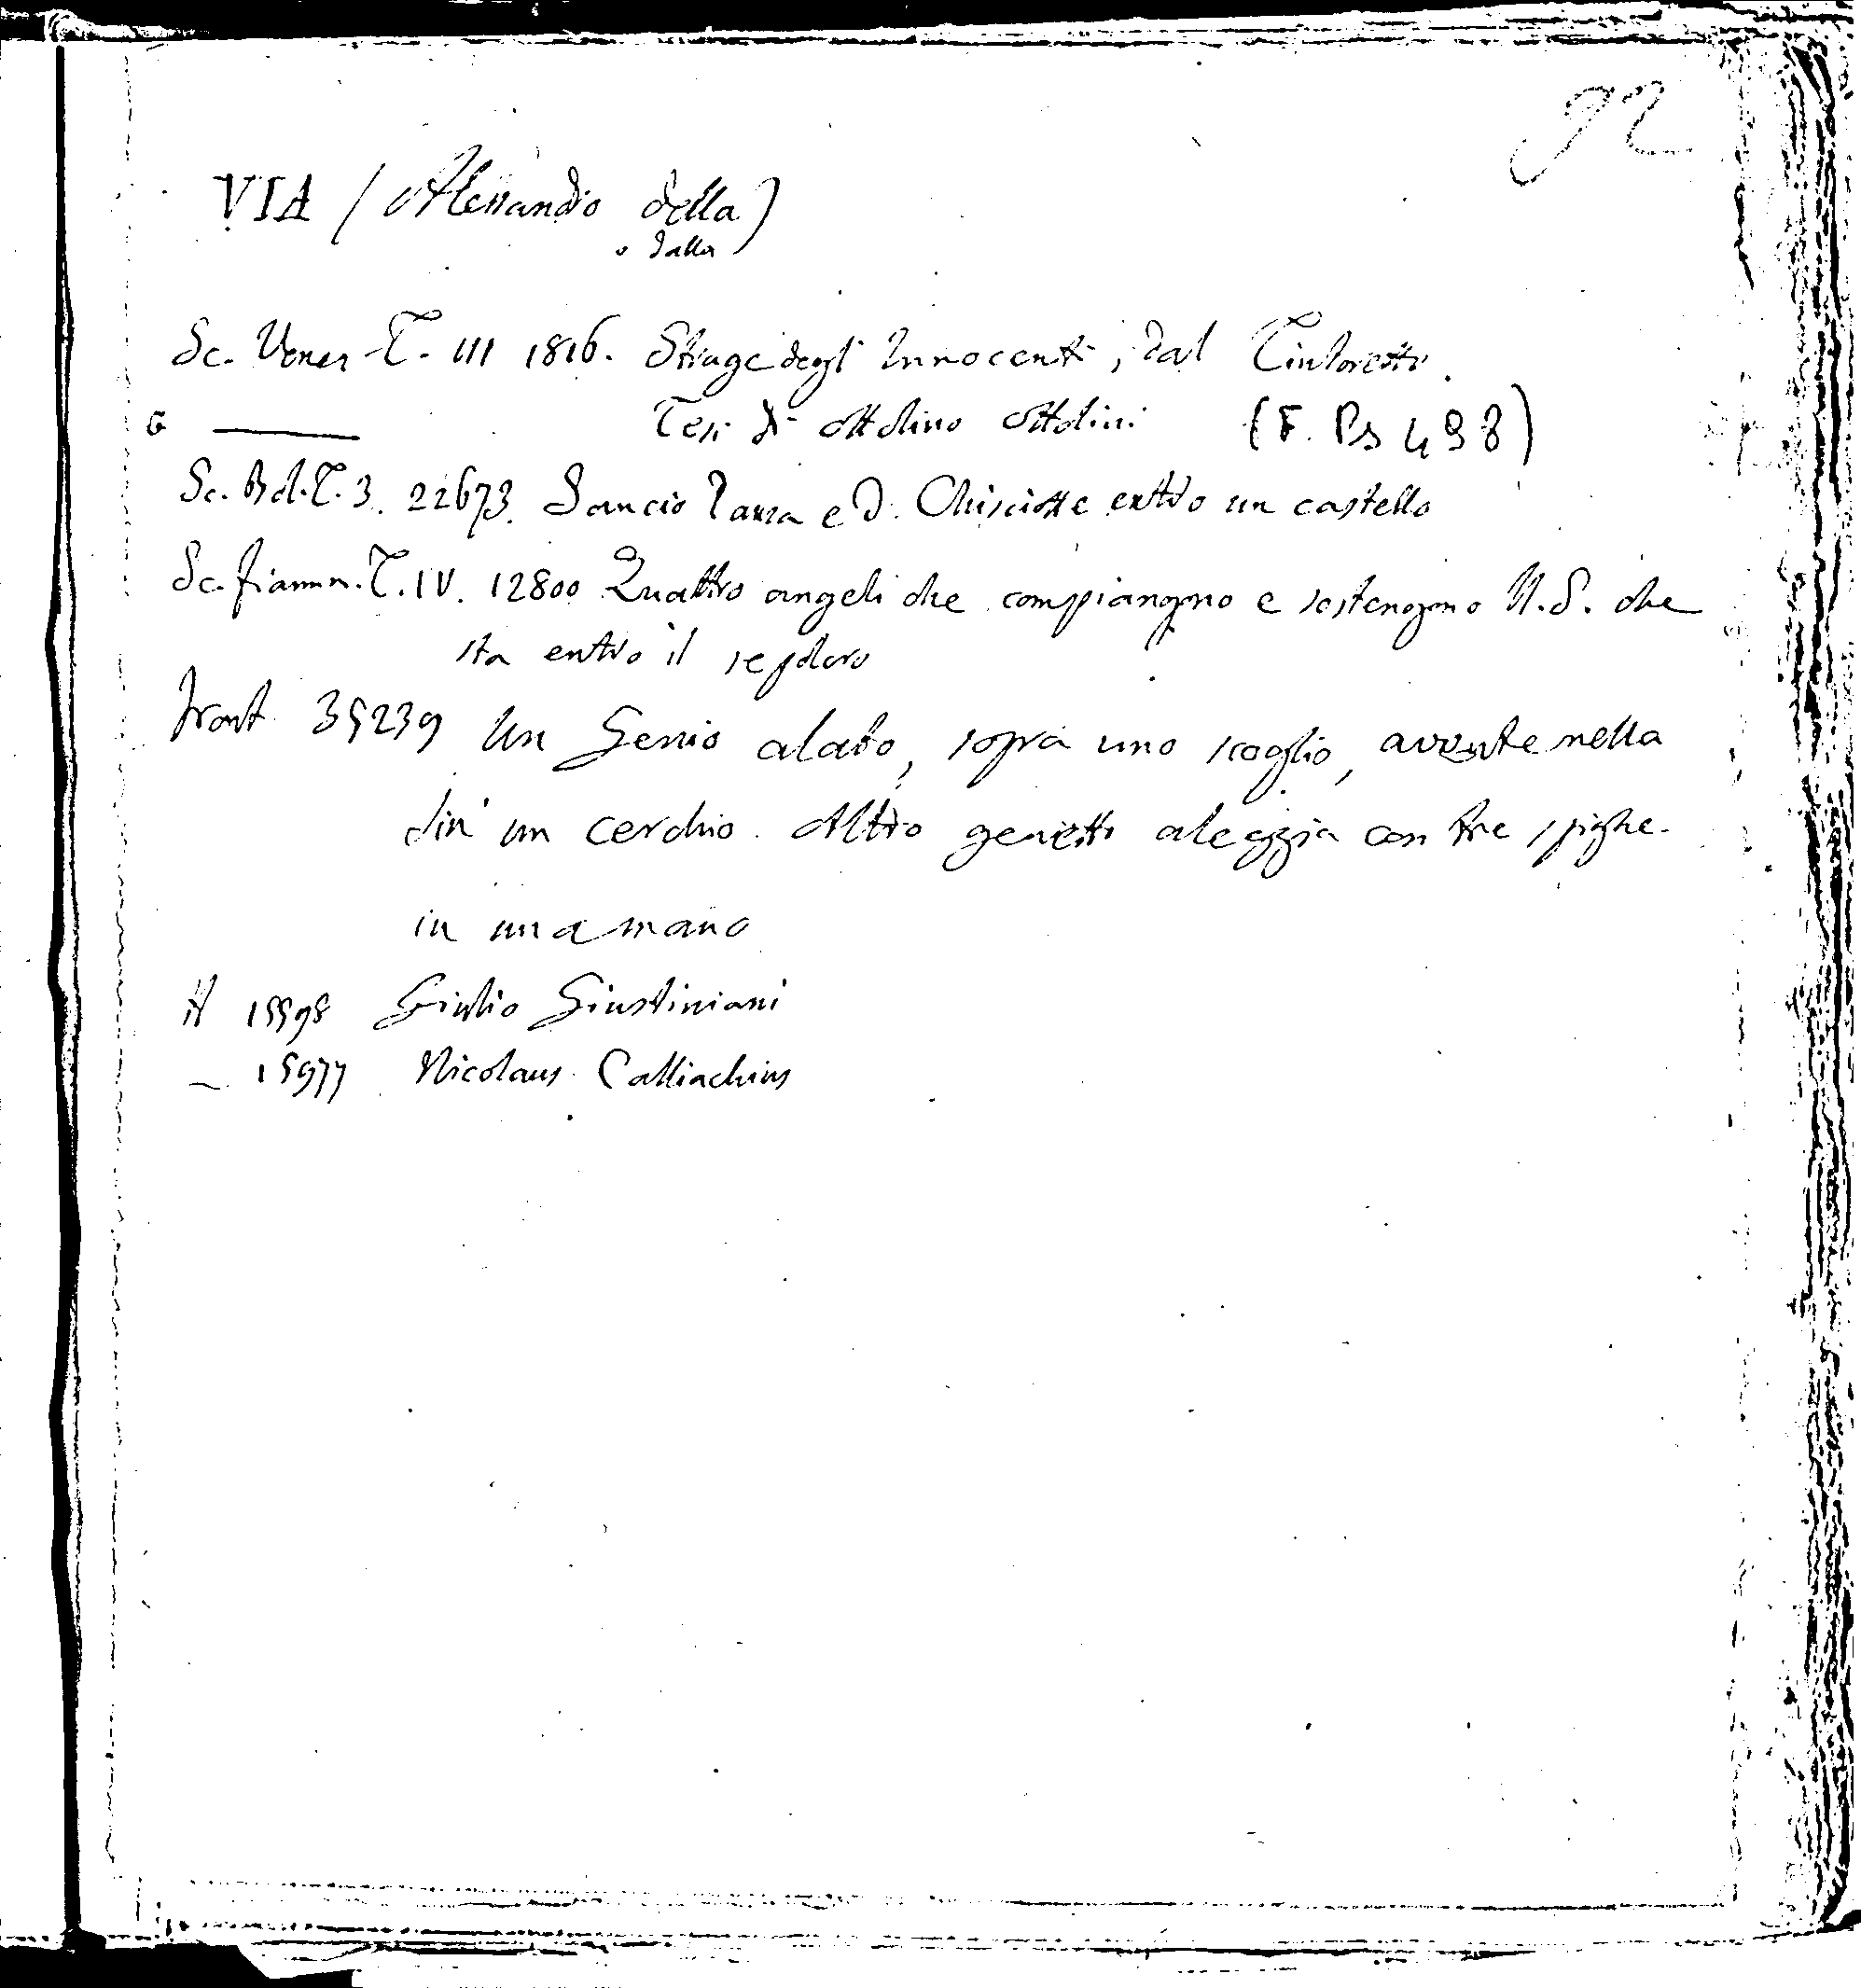 92
VIA (Alessandro della)
o dalla
Sc. Venez. T. III 1816. Strage degl' Innocenti, dal Tintoretto.
G ——— Tesi di Ottolino Ottolini (F. Ps 498)
Sc. Bol. T. 3. 22673. Sancio Panza e D. Chisciotte entro un castello
Sc. fiamm. T. IV. 12800 Quattro angeli che compiangono e sostengono N.S. che
sta entro il sepolcro
front 35239 Un Genio alato, sopra uno scoglio, avente nella
un cerchio. Altro genietto aleggia con tre spighe
in una mano
15598 Giulio Giustiniani
— 15977 Nicolaus Calliachius